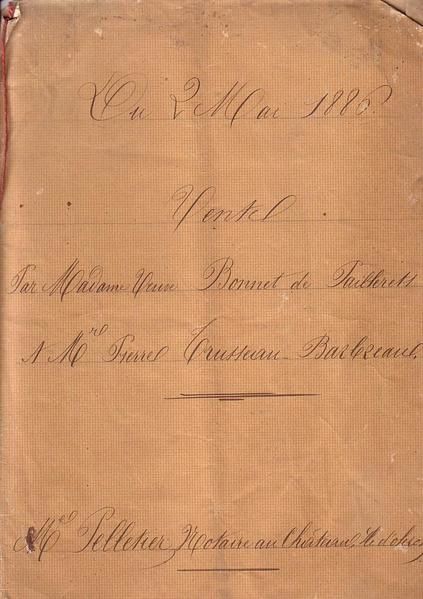 Du 2 Mai 1886.
Vente
Par Madame Veuve Bonnet de Paillerets
A Mr Pierre Trusseau-Barbreau,
Me Pelletier, Notaire au Château,